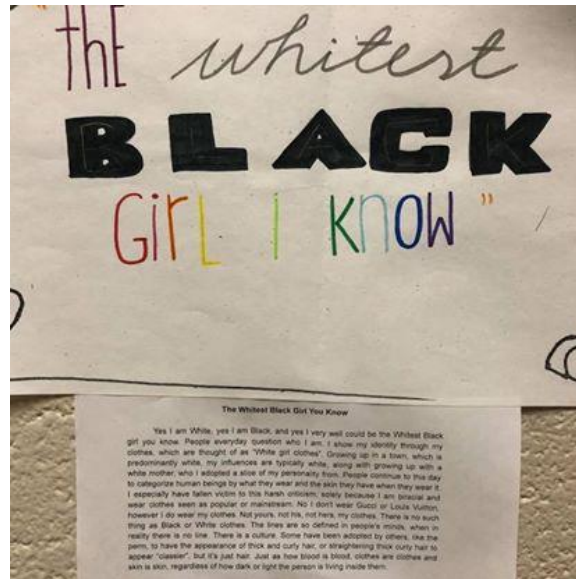 "the whitest
BLACK
GirL i KNOW"
The Whitest Black Girl You Know
Yes I am White, yes I am Black, and yes I very well could be the Whitest Black
girl you know. People everyday question who I am. I show my identity through my
clothes, which are thought of as "White girl clothes". Growing up in a town, which is
predominantly white, my influences are typically white, along with growing up with a
white mother, who I adopted a slice of my personality from. People continue to this day
to categorize human beings by what they wear and the skin they have when they wear it.
I especially have fallen victim to this harsh criticism, solely because I am biracial and
wear clothes seen as popular or mainstream. No I don't wear Gucci or Louis Vuitton,
however I do wear my clothes. Not yours, not his, not hers, my clothes. There is no such
thing as Black or White clothes. The lines are so defined in people's minds, when in
reality there is no line. There is a culture. Some have been adopted by others, like the
perm, to have the appearance of thick and curly hair, or straightening thick curly hair to
appear "classier", but it's just hair. Just as how blood is blood, clothes are clothes and
skin is skin, regardless of how dark or light the person is living inside them.